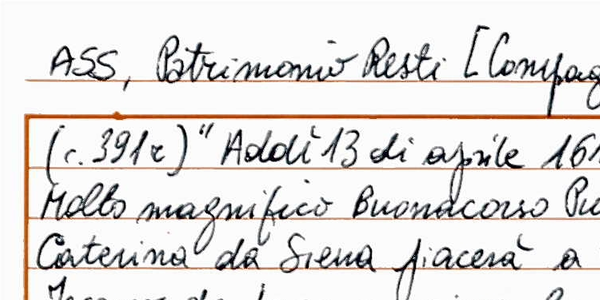 ASS, Patrimonio Resti [Compag
(c. 391r) "Addì 13 di aprile 161
Molto magnifico Buonacorso Pu
Caterina da Siena piacerà a